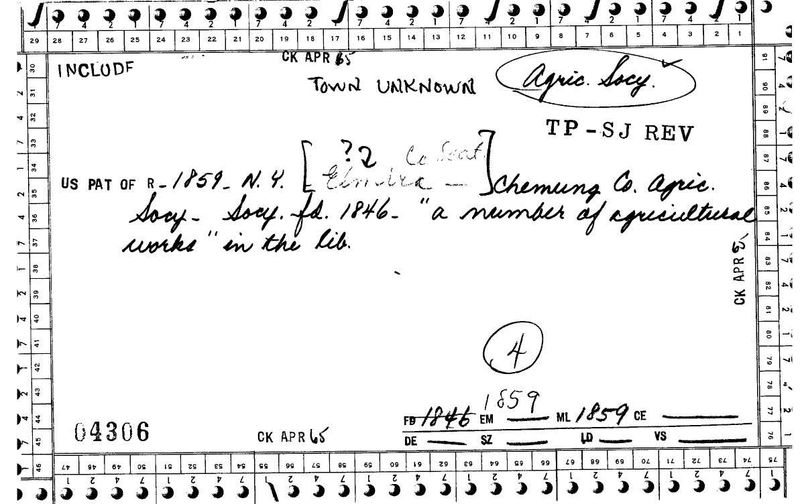 INCLUDE
CK APR 65
TOWN UNKNOWN
Agric. Socy.
TP-SJ REV
? 2
Co Seat
US PAT OF R - 1859 - N.Y. [ Elmira - ] Chemung Co. Agric.
Socy - Socy. fd. 1846 - "a number of agricultural
works" in the lib.
CK APR 65
4
1859
FD 1846 EM ML 1859 CE
04306
CK APR 65
DE SZ LD VS